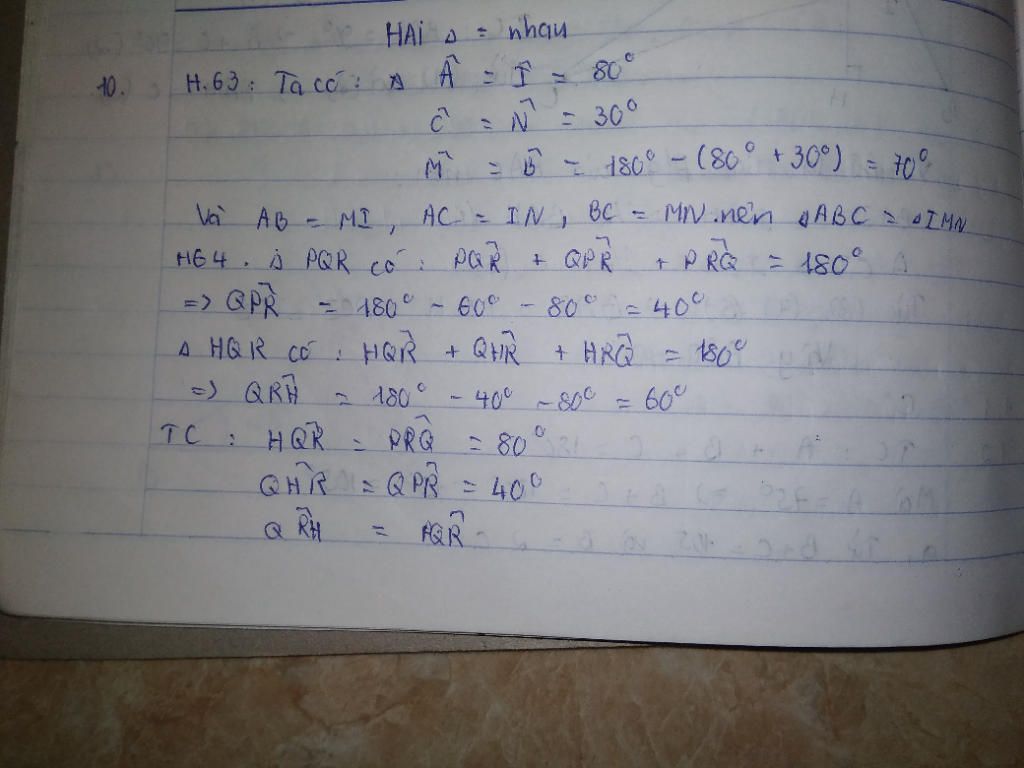 HAI Δ = nhau
10. H.63: Ta có: Δ Â = Î = 80°
Ĉ = N̂ = 30°
M̂ = B̂ = 180° - (80° + 30°) = 70°
Và AB = MI, AC = IN, BC = MN nên ΔABC = ΔIMN
H64. Δ PQR có: PQ̂R + QP̂R + PR̂Q = 180°
=> QP̂R = 180° - 60° - 80° = 40°
Δ HQR có: HQ̂R + QĤR + HR̂Q = 180°
=> QR̂H = 180° - 40° - 80° = 60°
TC: HQ̂R = PR̂Q = 80°
QĤR = QP̂R = 40°
QR̂H = PQ̂R